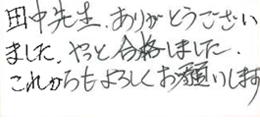 田中先生、ありがとうござい
ました、やっと合格しました.
これからもよろしくお願いします